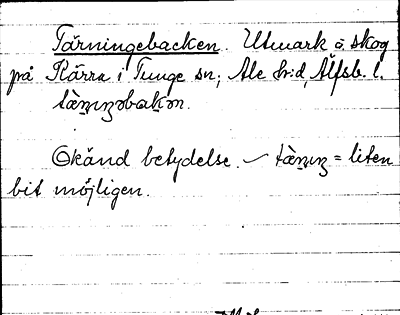 Tärningebacken. Utmark o. skog
på Kärra i Tunge sn; Ale hd, Älfsb. l.
tæ̀ṇıŋəbakən.
Okänd betydelse. – tæ̀ṇıŋ = liten
bit möjligen.